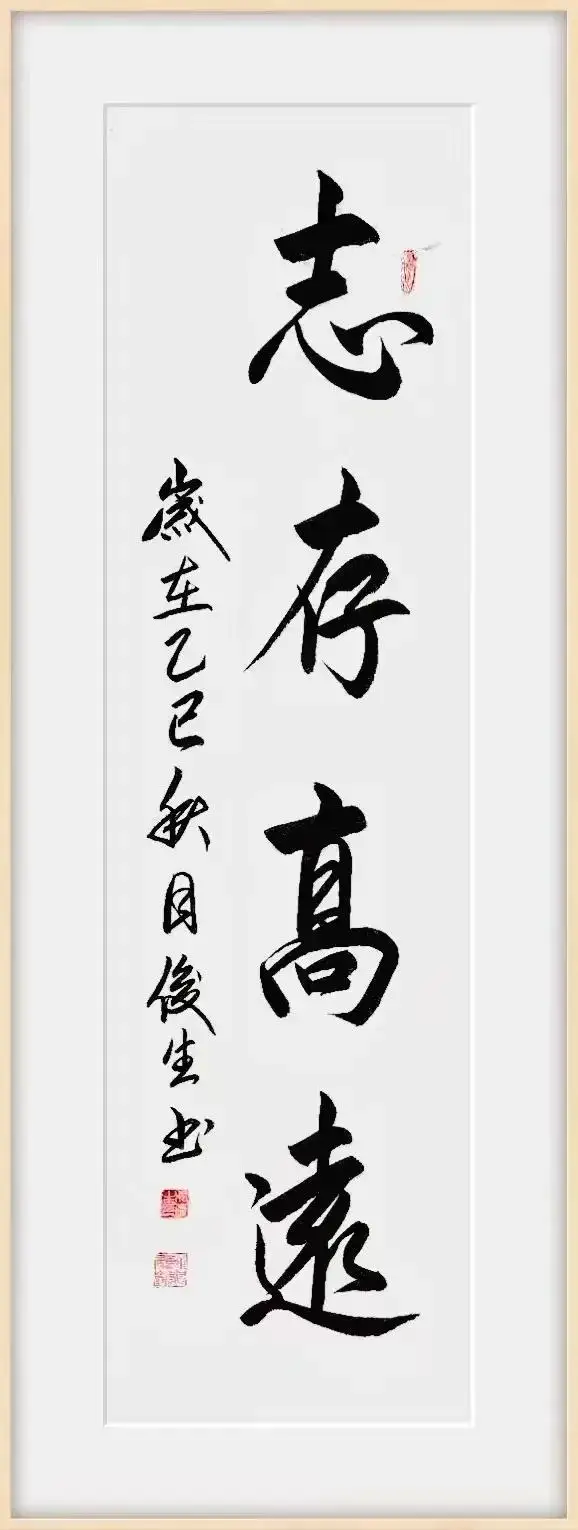 志存高遠
歲在乙巳秋月俊生书